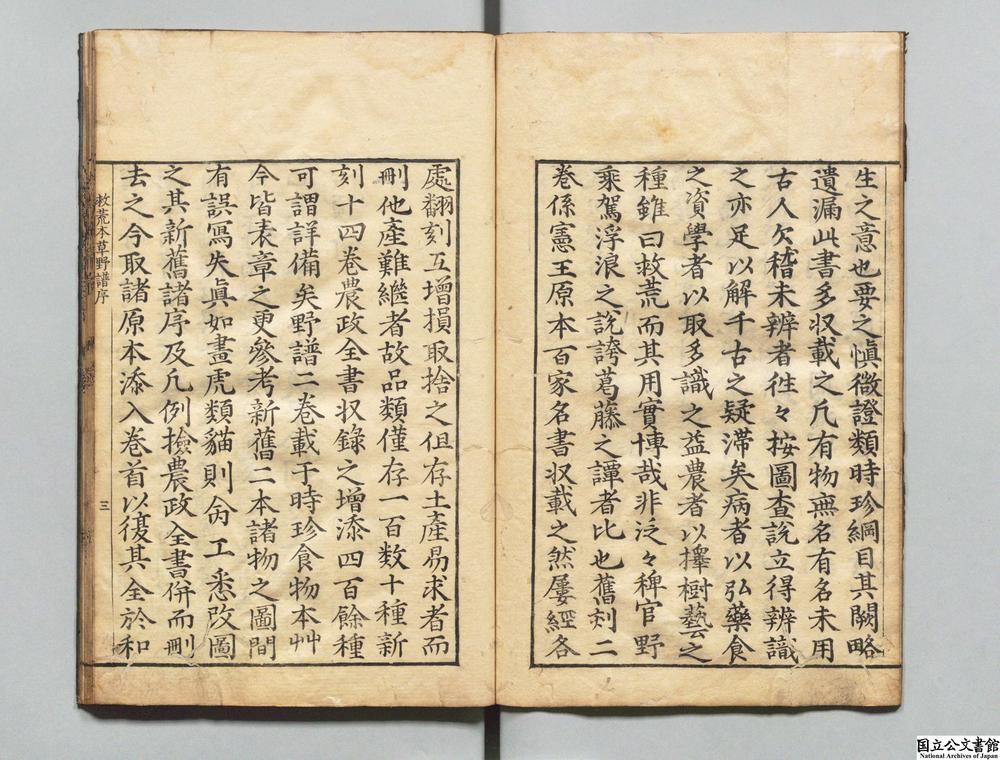 生之意也要之慎微證類時珍綱目其闕略
遺漏此書多収載之凡有物無名有名未用
古人欠稽未辨者徃々桉圖查說立得辨識
之亦足以解千古之疑滞矣病者以弘藥食
之資學者以取多識之益農者以擇樹藝之
種雖曰救荒而其用實博哉非泛々稗官野
乘駕浮浪之說誇葛藤之譚者比也舊刻二
卷係憲王原本百家名書収載之然屢經各
處翻刻互增損取捨之但存土產易求者而
刪他產難繼者故品類僅存一百数十種新
刻十四卷農政全書収錄之增添四百餘種
可謂詳備矣野譜二卷載于時珍食物本艸
今皆表章之更參考新舊二本諸物之圖間
有誤寫失眞如畫虎類貓則命工悉改圖
之其新舊諸序及凡例撿農政全書併而刪
去之今取諸原本添入卷首以復其全於和
救荒本草野譜序
三
国立公文書館
National Archives of Japan